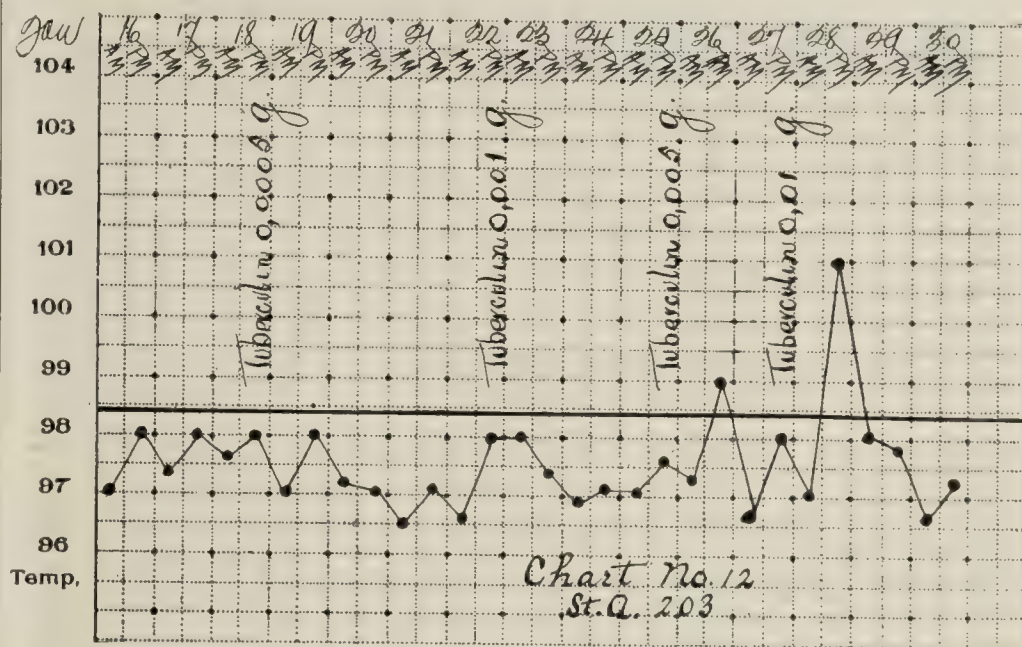 Jan 16 17 18 19 20 21 22 23 24 25 26 27 28 29 30
104
103
102
101
100
99
98
97
96
Temp,
Tuberculin 0,0002 g.
Tuberculin 0,001 g.
Tuberculin 0,005 g.
Tuberculin 0,01 g.
Chart No. 12
St. A. 203